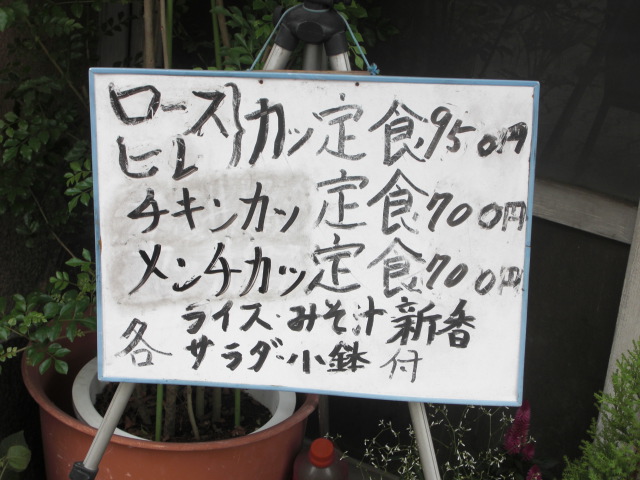 ロース}カツ定食950円
ヒレ
チキンカツ定食700円
メンチカツ定食700円
各 ライス・みそ汁 新香
サラダ・小鉢 付